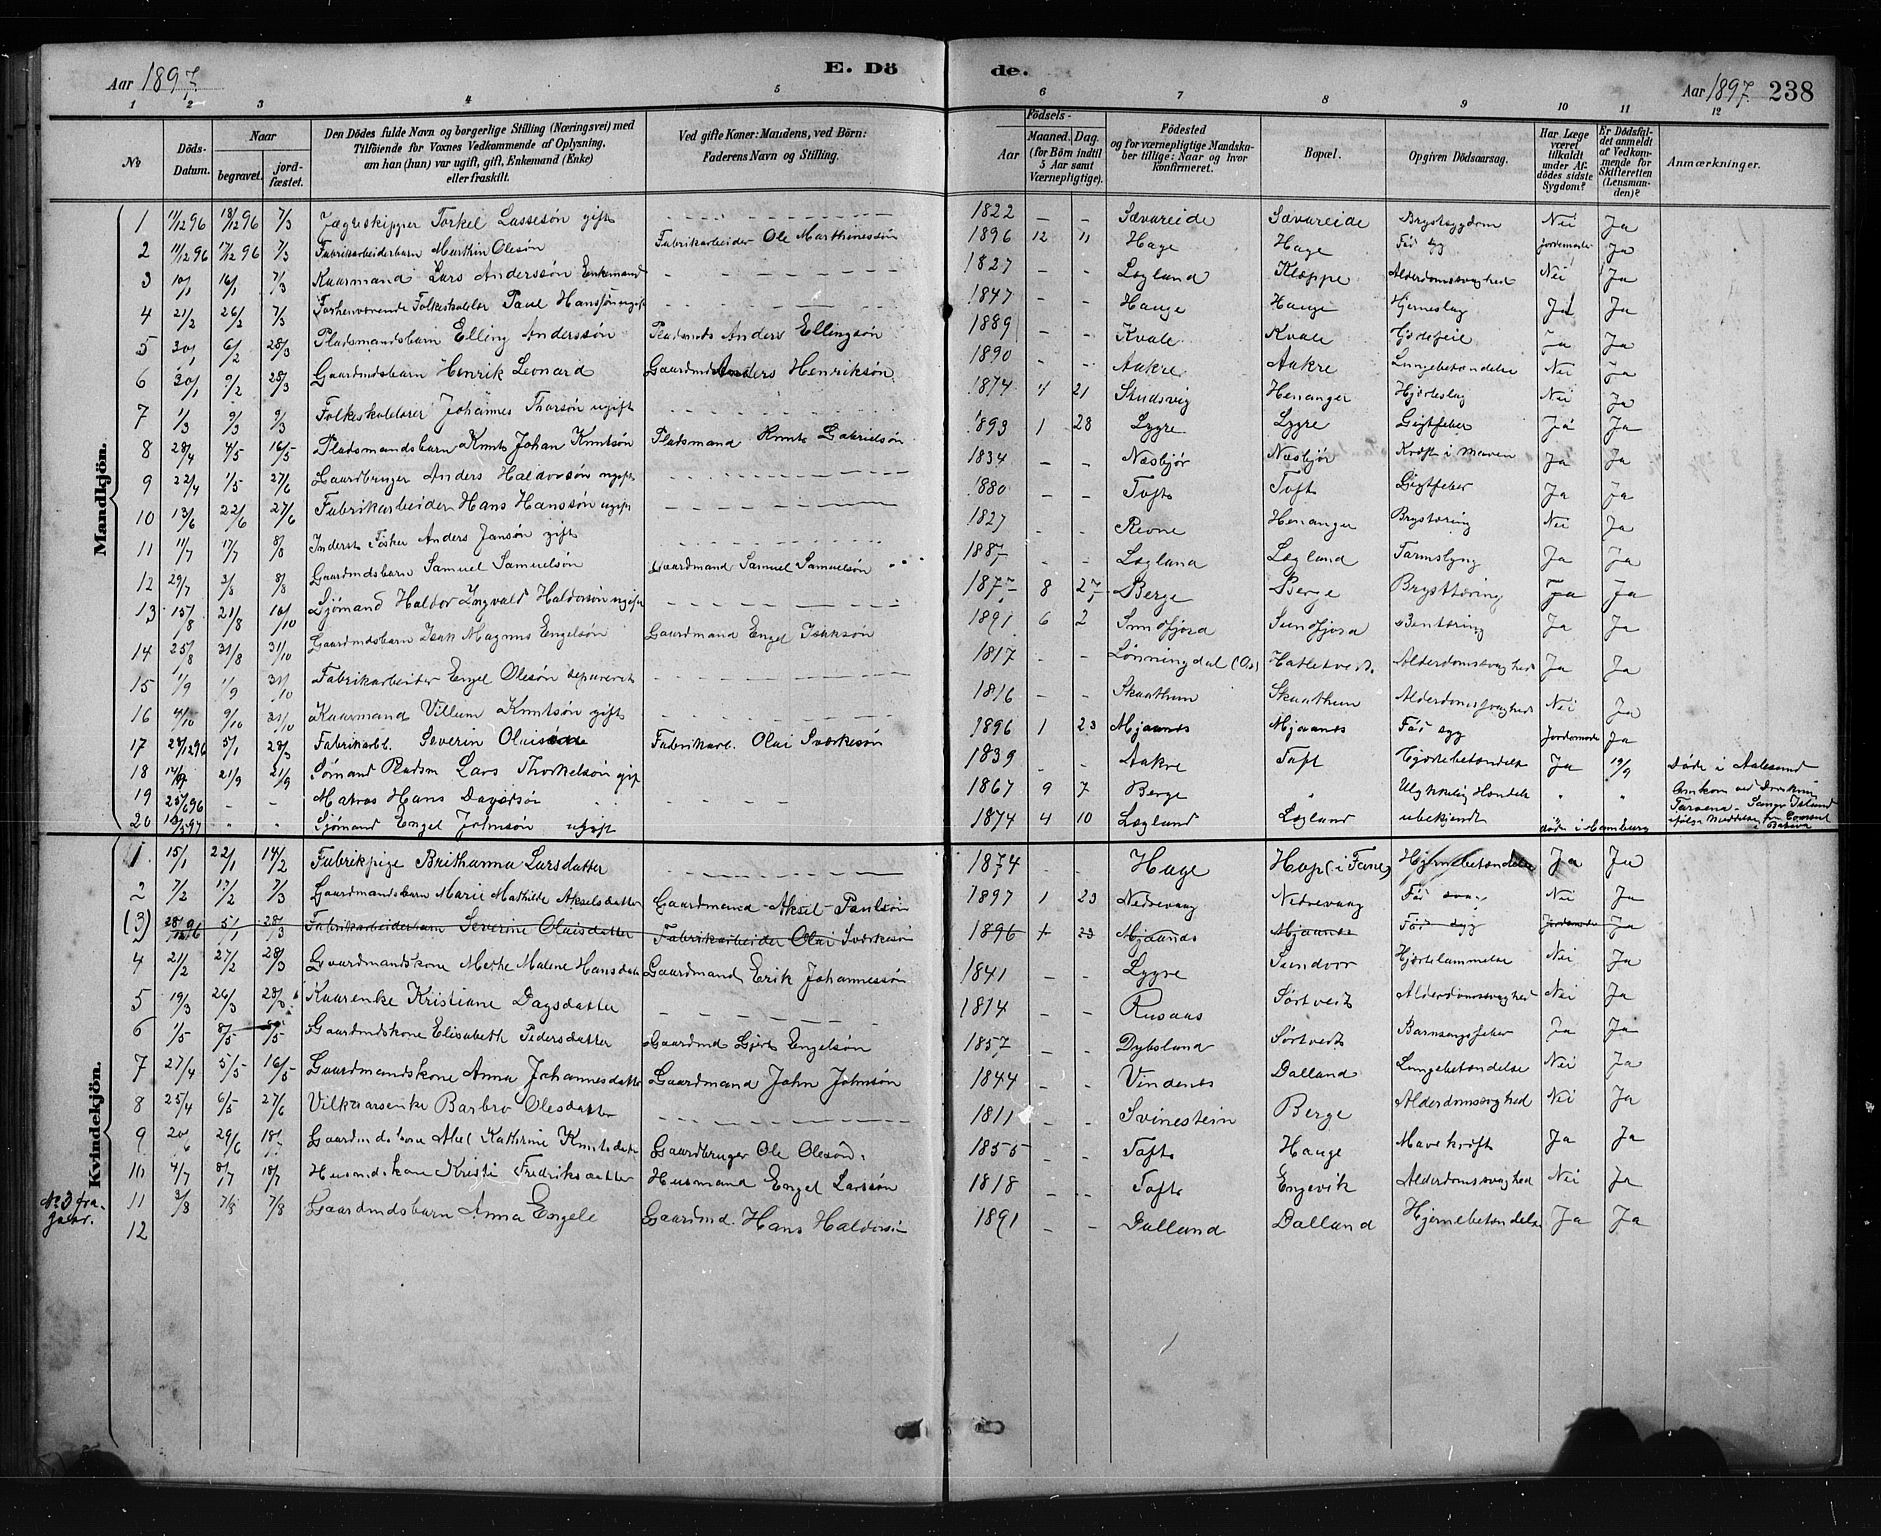 Aar 1897. E. Döde. Aar 1897. 238
1 2 3 4 5 6 7 8 9 10 11 12
No
Döds-Datum.
Naar
begravet.
jord-fæstet.
Den Dödes fulde Navn og borgerlige Stilling (Næringsvei) med
Tilföiende for Voxnes Vedkommende af Oplysning,
om han (hun) var ugift, gift, Enkemand (Enke)
eller fraskilt.
Ved gifte Koner: Mandens, ved Börn:
Faderens Navn og Stilling.
Födsels-
Aar
Maaned. Dag.
(for Börn indtil
5 Aar samt
Værnepligtige).
Födested
og for værnepligtige Mandska-
ber tillige: Naar og hvor
konfirmeret.
Bopæl.
Opgiven Dödsaarsag.
Har Læge
været
tilkaldt
under Af-
dödes sidste
Sygdom?
Er Dödsfal-
det anmeldt
af Vedkom-
mende for
Skifteretten
(Lensman-
den)?
Anmærkninger.
Mandkjön.
1 11/12 96 18/12 96 7/3 Jægteskipper Torkel Lassesön gift 1822 – – Sævareide Sævareide Brystsygdom Nei Ja
2 11/12 96 17/12 96 7/3 Fabrikarbeiderbarn Marthin Olesön Fabrikarbeider Ole Marthinessön 1896 12 11 Hage Hage Fös syg Jordemoder Ja
3 10/1 16/1 7/3 Kaarmand Lars Anderssön Enkemand 1827 – – Løgland Kloppe Alderdomssvaghed Nei Ja
4 21/2 26/2 7/3 Forhenværende Folkeskolelær Paul Hanssön ugift 1847 – – Hauge Hauge Hjerneslag Ja Ja
5 30/1 6/2 28/3 Pladsmandsbarn Elling Anderssön Pladsmds Anders Ellingsön 1889 – – Kvale Kvale Hjertefeil Ja Ja
6 30/1 9/2 28/3 Gaardmdsbarn Henrik Leonard Gaardmd Anders Henriksön. 1890 – – Aakre Aakre Lungebetændelse Nei Ja
7 1/3 9/3 9/3 Folkeskolelærer Johannes Thorsön ugift 1874 4 21 Skudsvig Henanger Hjerteslag Nei Ja
8 28/4 4/5 16/5 Pladsmandsbarn Knut Johan Knutsön Pladsmand Knut Gabrielsön 1893 1 28 Lygre Lygre Gigtfeber Ja Ja
9 22/4 1/5 27/6 Gaardbruger Anders Haldorsön ugift 1834 – – Næsbjør Næsbjør Kræft i Maven Ja Ja
10 13/6 22/6 27/6 Fabrikarbeider Hans Hanssön ugift 1880 – – Toft Toft Gigtfeber Ja Ja
11 11/7 17/7 8/8 Inderst Fisker Anders Jansön gift 1827 – – Revne Henanger Brysttæring Nei Ja
12 29/7 3/8 8/8 Gaardmdsbarn Samuel Samuelsön Gaardmand Samuel Samuelsön 1887 – – Løgland Løgland Tarmslyng Ja Ja
13 15/8 21/8 10/10 Sjömand Haldor Ingvald Haldorsön ugift 1877 8 27 Berge Berge Brysttæring Ja Ja
14 25/8 31/8 31/10 Gaardmdsbarn Isak Magnus Engelsön Gaardmand Engel Isaksön 1891 6 2 Sundfjord Sundfjord Bentæring Ja Ja
15 1/9 1/9 31/10 Fabrikarbeider Engel Olesön separeret 1817 – – Lönningdal (Os) Hatletvedt. Alderdomssvaghed Ja Ja
16 4/10 9/10 31/10 Kaarmand Villum Knutsön gift 1816 – – Skaathun Skaathun Alderdomssvaghed Nei Ja
17 28/12 96 5/1 28/3 Fabrikarb. Severin Olaisön Fabrikarb. Olai Sværkesön 1896 1 23 Mjaanes Mjaanes Fös syg Jordemoder Ja
18 14/9 21/9 21/9 Sömand Pladsm Lars Thorkelsön gift 1839 – – Aakre Toft Hjertebetændelse Ja 19/9 Døde i Aalesund
19 25/6 96 – – Matros Hans Davidsön 1867 9 7 Berge " Ulykkelig Hændelse " " Omkom ved Drukning
20 12/5 97 " " Sjömand Engel Johnsön ugift 1874 4 10 Løgland Løgland ubekjendt döde i Hamburg
Kvindekjön.
1 15/1 22/1 14/2 Fabrikpige Brithanna Larsdatter 1874 – – Hage Hop (i Fane) Hjernebetændelse Ja Ja
2 7/2 17/2 7/3 Gaardmandsbarn Marie Mathilde Akselsdatter Gaardmand Aksel Paulsön 1897 1 23 Nedrevaag Nedrevaag Fös svag Nei Ja
(3) 28/12 96 5/1 28/3 Fabrikarbeiderbarn Severine Olaisdatter Fabrikarbeider Olai Sværkesön 1896 1 23 Mjaanes Mjaanes Fös syg Jordemoder Ja
4 21/2 27/2 28/3 Gaardmandskone Merthe Malene Hansdatter Gaardmand Erik Johannessön 1841 – – Lygre Sundvor Hjertelammelse Nei Ja
5 19/3 26/3 28/3 Kaarenke Kristiane Dagsdatter 1814 – – Rusaas Sörtvedt Alderdomssvaghed Nei Ja
6 1/5 8/5 8/5 Gaardmdskone Elisabeth Pedersdatter Gaardmd Gjert Engelsön 1857 – – Dybsland Sörtvedt Barnsengsfeber Ja Ja
7 27/4 5/5 16/5 Gaardmandskone Anna Johannesdatter Gaardmand John Johnsön 1844 – – Vindenes Dalland Lungebetændelse Nei Ja
8 25/4 6/5 27/6 Vilkaarsenke Barbro Olesdatter 1811 – – Svinestein Berge Alderdomssvaghed Nei Ja
9 20/6 29/6 18/7 Gaardmdskone Abel Kathrine Knutsdatter Gaardbruger Ole Olesön. 1855 – – Toft Hauge Mavekræft Ja Ja
10 4/7 8/7 18/7 Husmdskone Kristi Fredriksdatter Husmand Engel Larssön 1818 – – Toft Engevik Alderdomssvaghed Nei Ja
No 3 fra
11 3/8 7/8 7/8 Gaardmdsbarn Anna Engele Gaardmd. Hans Haldorsön 1891 – – Dalland Dalland Hjernebetændelse Ja Ja
12